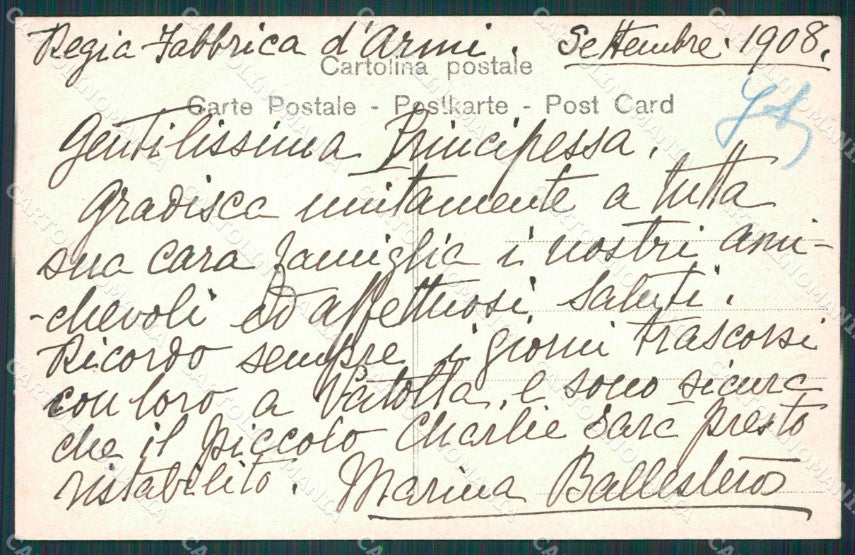 Regia Fabbrica d'Armi. Settembre. 1908.
Cartolina postale
Carte Postale - Postkarte - Post Card
Gentilissima Principessa,
gradisca unitamente a tutta
sua cara famiglia i nostri ami-
-chevoli ed affettuosi saluti.
Ricordo sempre i giorni trascorsi
con loro a Vatolla, e sono sicura
che il piccolo Charlie sarà presto
ristabilito. Marina Ballesteros
CARTOLINOMANIA